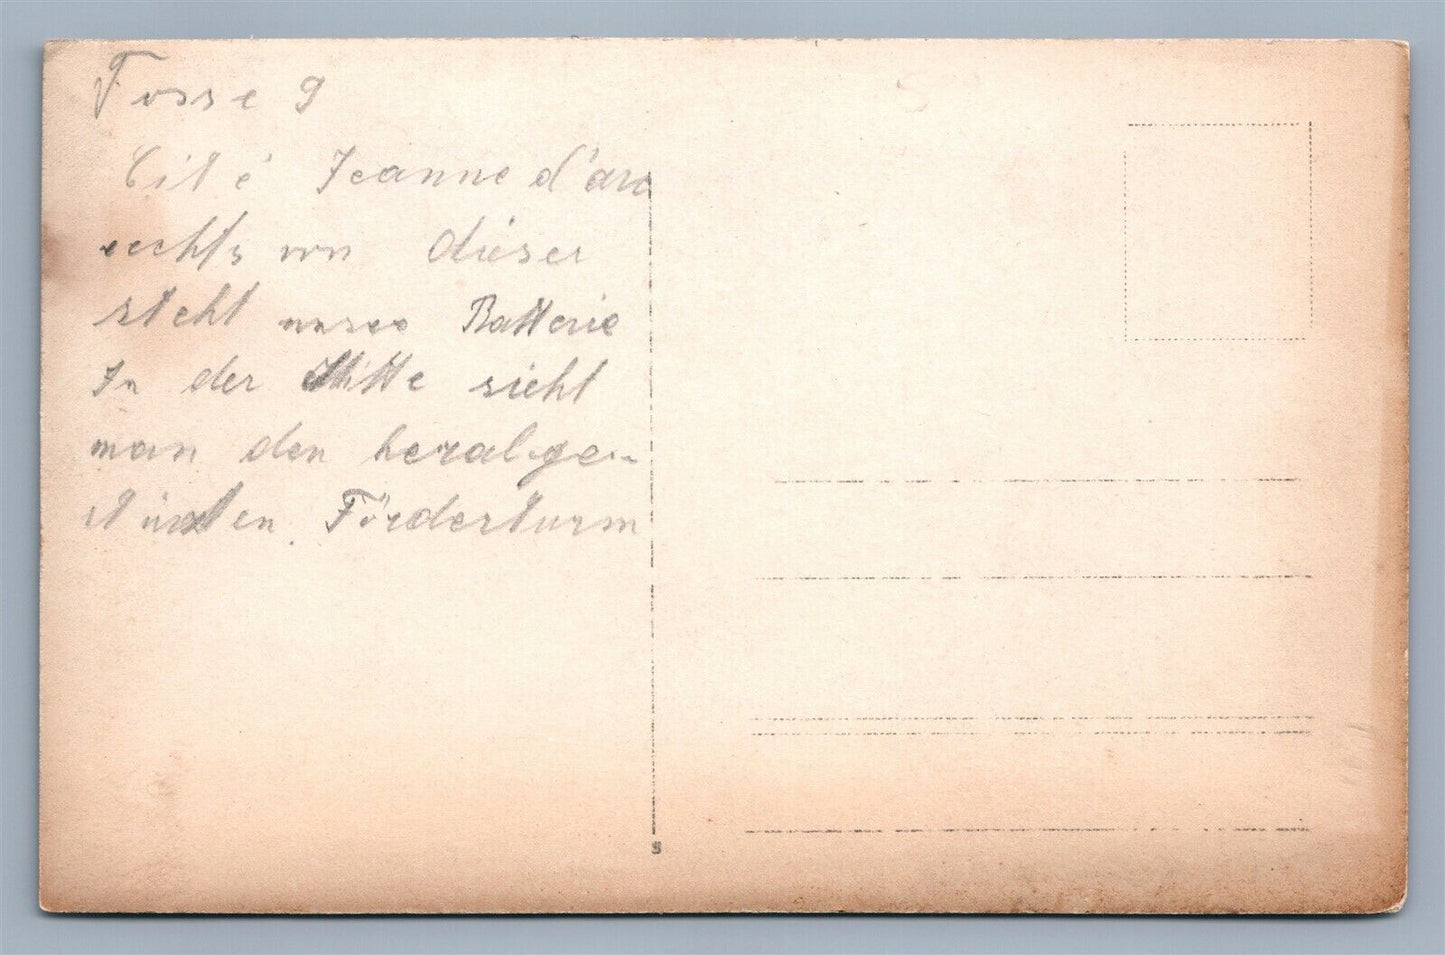 Fosse 9
Cité Jeanne d'arc
rechts von dieser
steht unsere Batterie
In der Mitte sieht
man den herabge-
stürzten Förderturm
S